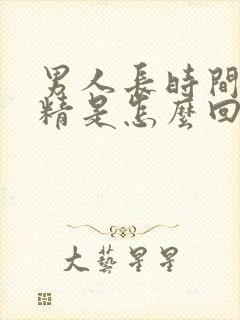 男人長時間
精是怎麼回
大藝星星